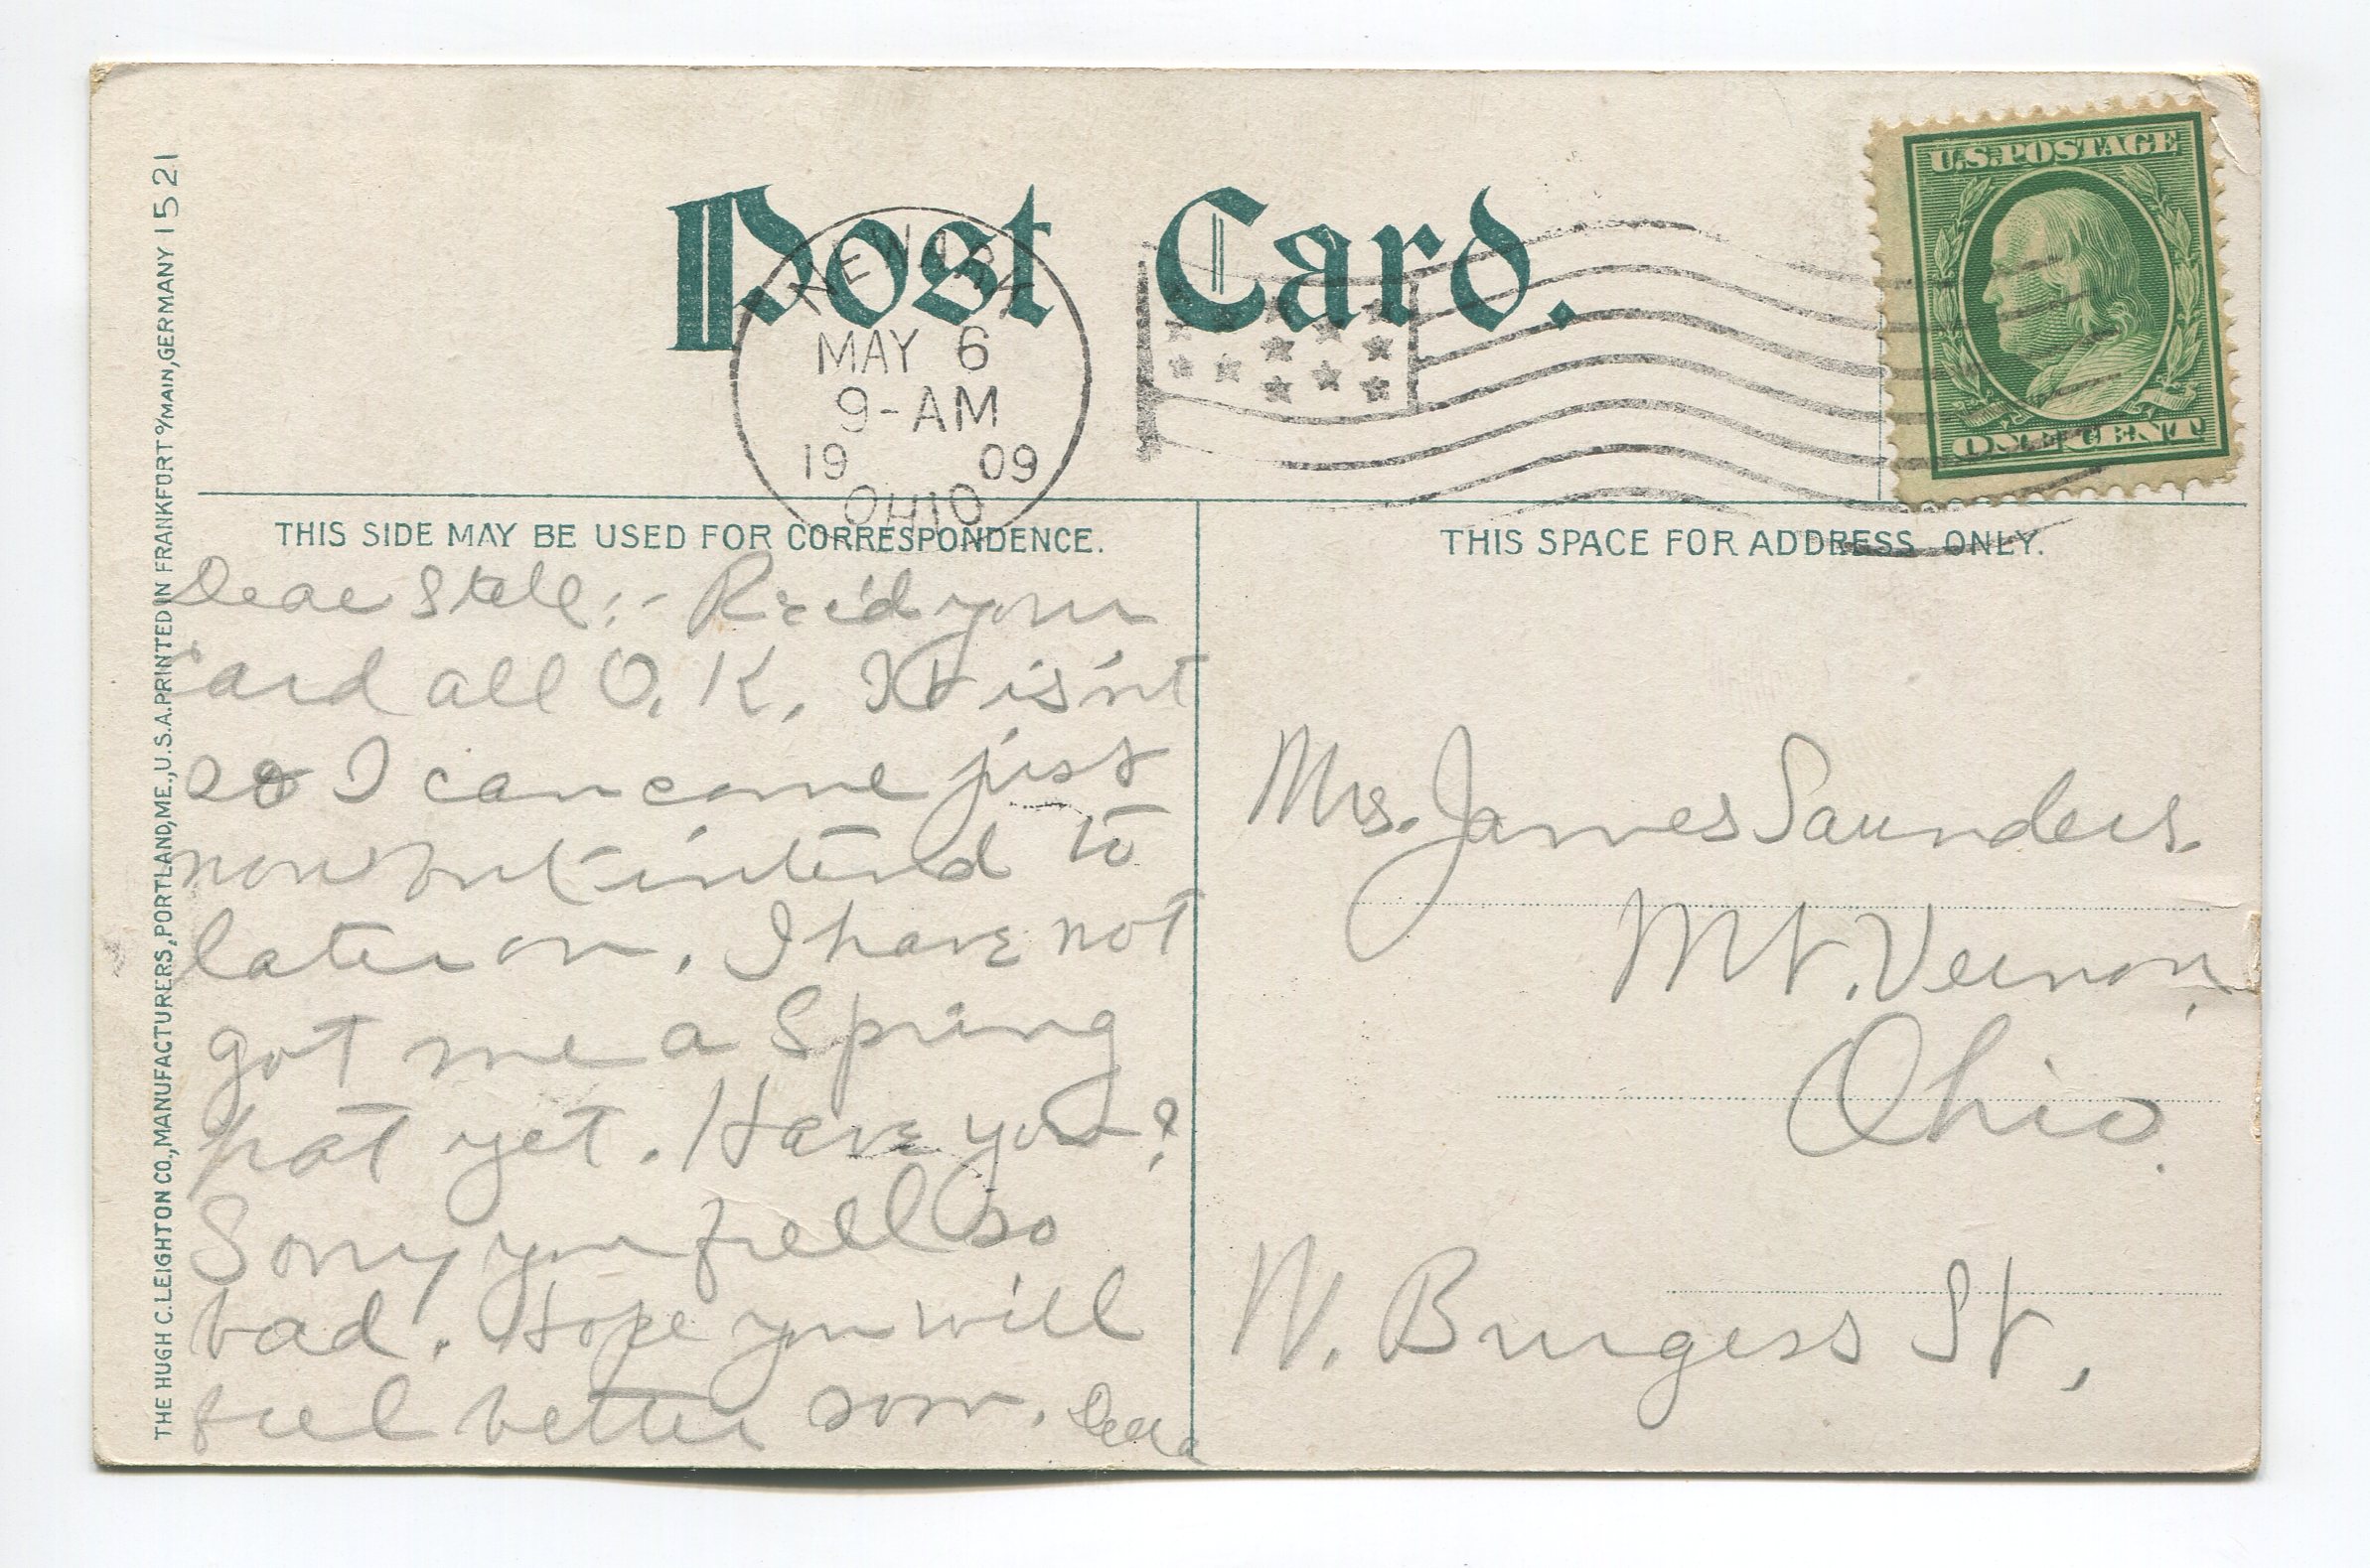 Post Card.
U.S. POSTAGE
ONE CENT
NEWARK
MAY 6
9-AM
19 09
OHIO
THIS SIDE MAY BE USED FOR CORRESPONDENCE.
THIS SPACE FOR ADDRESS ONLY.
THE HUGH C. LEIGHTON CO., MANUFACTURERS, PORTLAND, ME., U.S.A. PRINTED IN FRANKFORT o/MAIN, GERMANY 1521
Dear Stell:- Rec'd your
card all O.K. It is'nt
so I can come just
now but intend to
later on. I have not
got me a Spring
hat yet. Have you?
Sorry you feell so
bad. Hope you will
feel better soon.
Mrs. James Saunders.
Mt. Vernon,
Ohio.
W. Burgess St,